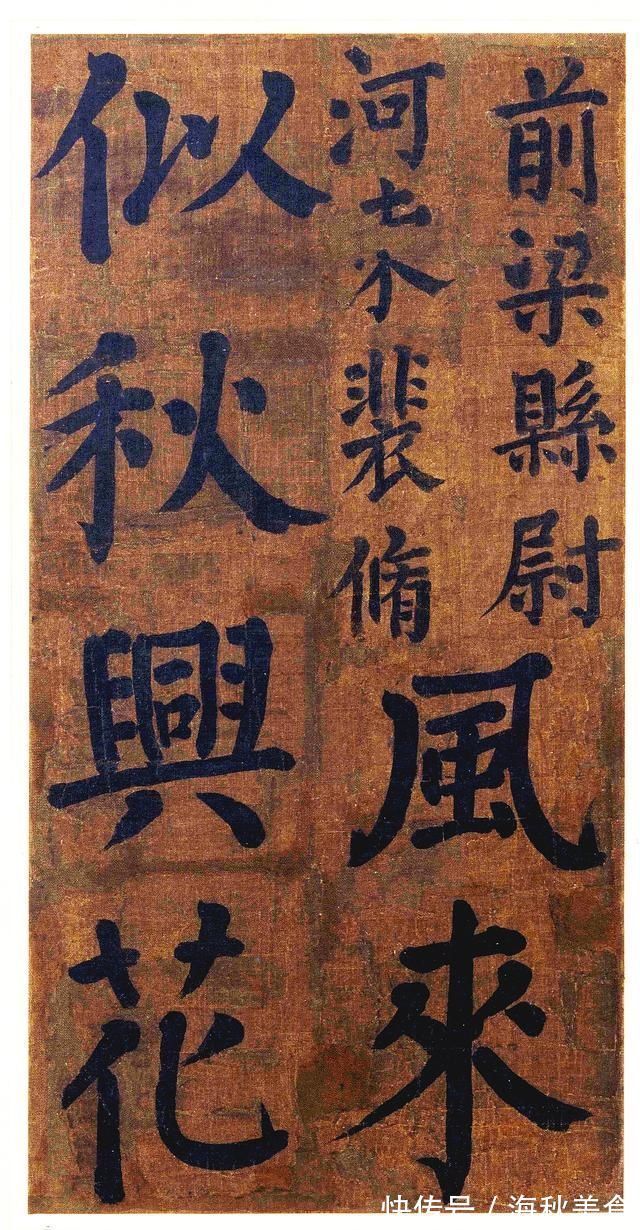 前梁縣尉
河裴脩
風來
似秋興花
快传号 / 海秋美食